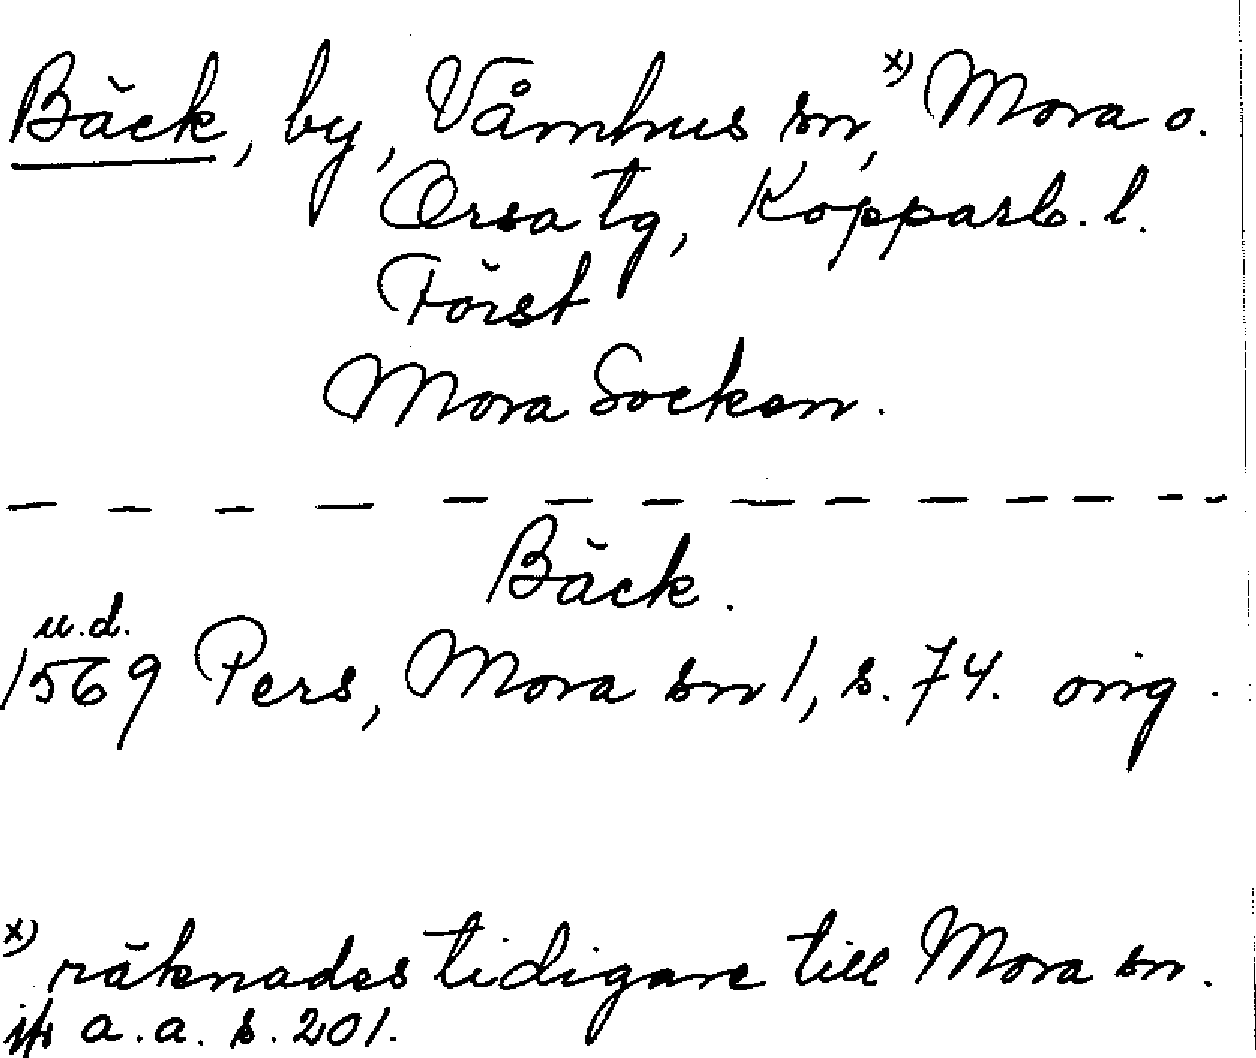 Bäck, by, Våmhus sn,x) Mora o.
Orsa tg, Kopparb. l.
Först
Mora Socken.
Bäck.
u.d.
1569 Pers, Mora sn 1, s. 74. orig.
x) räknades tidigare till Mora sn.
jfr a.a. s. 201.